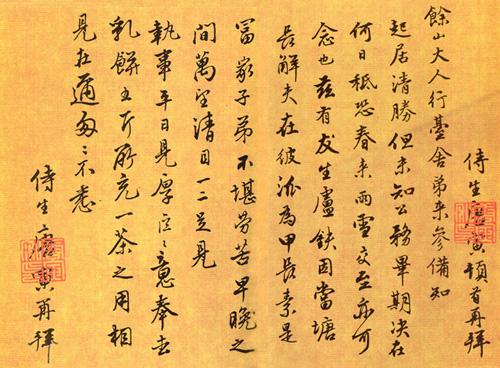 侍生唐寅頓首再拜
餘山大人行臺舍弟来參備知
起居清勝但未知公務畢期决在
何日祗恐春来雨雪交至亦可
念也茲有友生盧因當塘
長解夫在彼派為甲長素是
冨家子弟不堪勞苦早晚之
間萬望清目一二足見
執事平日見厚意奉去
乳餅五斤聊充一茶之用相
見在邇匆〻不悉
侍生唐寅再拜